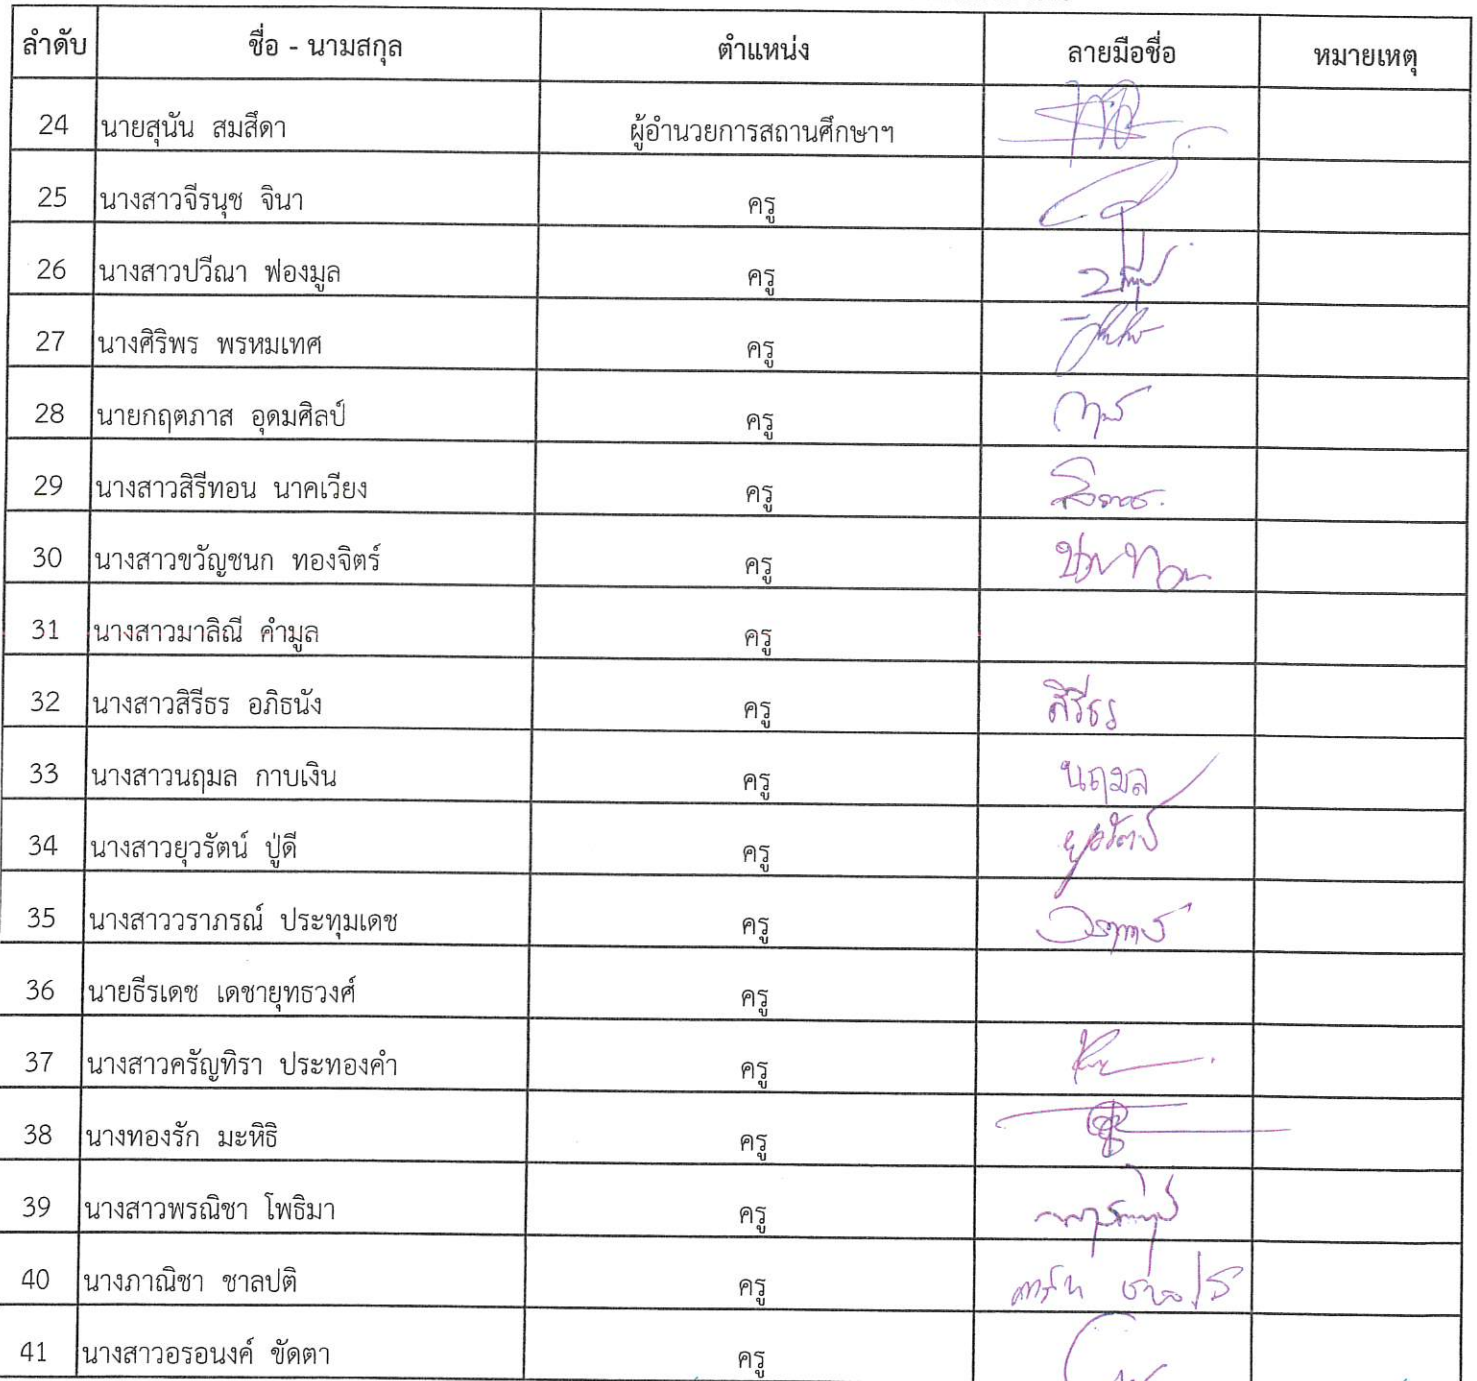 ลำดับ ชื่อ - นามสกุล ตำแหน่ง ลายมือชื่อ หมายเหตุ
24 นายสุนัน สมสีดา ผู้อำนวยการสถานศึกษาฯ
25 นางสาวจีรนุช จินา ครู
26 นางสาวปวีณา ฟองมูล ครู
27 นางศิริพร พรหมเทศ ครู
28 นายกฤตภาส อุดมศิลป์ ครู
29 นางสาวสิรีทอน นาคเวียง ครู
30 นางสาวขวัญชนก ทองจิตร์ ครู
31 นางสาวมาลิณี คำมูล ครู
32 นางสาวสิรีธร อภิธนัง ครู สิรีธร
33 นางสาวนฤมล กาบเงิน ครู นฤมล
34 นางสาวยุวรัตน์ ปู่ดี ครู ยุวรัตน์
35 นางสาววราภรณ์ ประทุมเดช ครู
36 นายธีรเดช เดชายุทธวงศ์ ครู
37 นางสาวครัญทิรา ประทองคำ ครู
38 นางทองรัก มะหิธิ ครู
39 นางสาวพรณิชา โพธิมา ครู
40 นางภาณิชา ชาลปติ ครู
41 นางสาวอรอนงค์ ขัดตา ครู